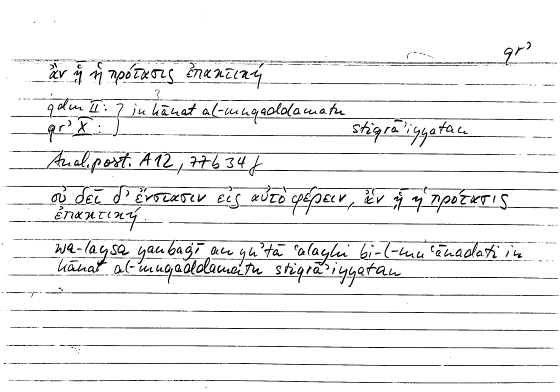 qrʾ
ἂν ᾖ ἡ πρότασις ἐπακτική
qdm II: } in kānat al-muqaddamatu
qrʾ X: } stiqrāʾiyyatan
Anal. post. A 12, 77b34f
οὐ δεῖ δ' ἔνστασιν εἰς αὐτὸ φέρειν, ἂν ᾖ ἡ πρότασις
ἐπακτική.
wa-laysa yanbaġī an yuʾtā ʿalayhi bi-l-muʿānadati in
kānat al-muqaddamatu stiqrāʾiyyatan